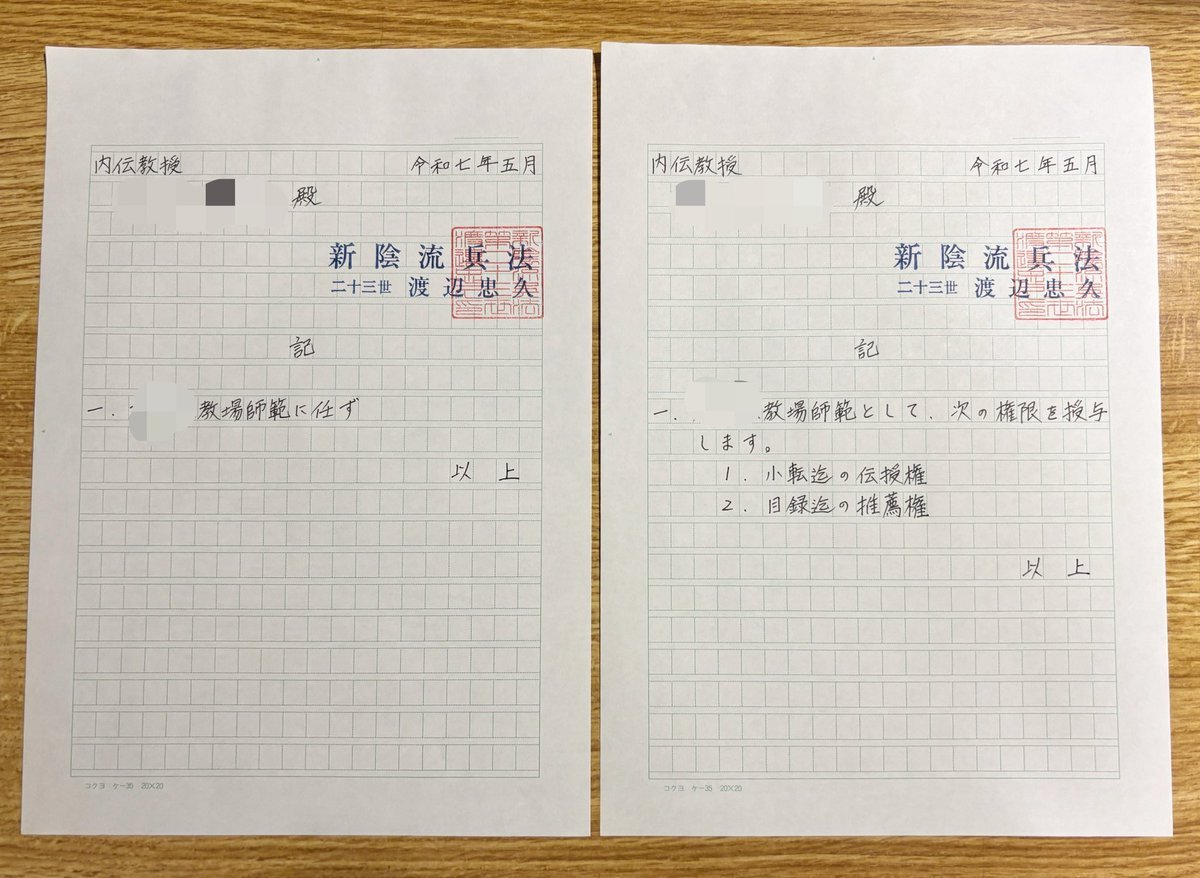 内伝教授 令和七年五月
殿
新陰流兵法
二十三世 渡辺忠久
記
一. 教場師範に任ず
以上
コクヨ ケー35 20×20
内伝教授 令和七年五月
殿
新陰流兵法
二十三世 渡辺忠久
記
一. 教場師範として、次の権限を授与
します。
1. 小転迄の伝授権
2. 目録迄の推薦権
以上
コクヨ ケー35 20×20